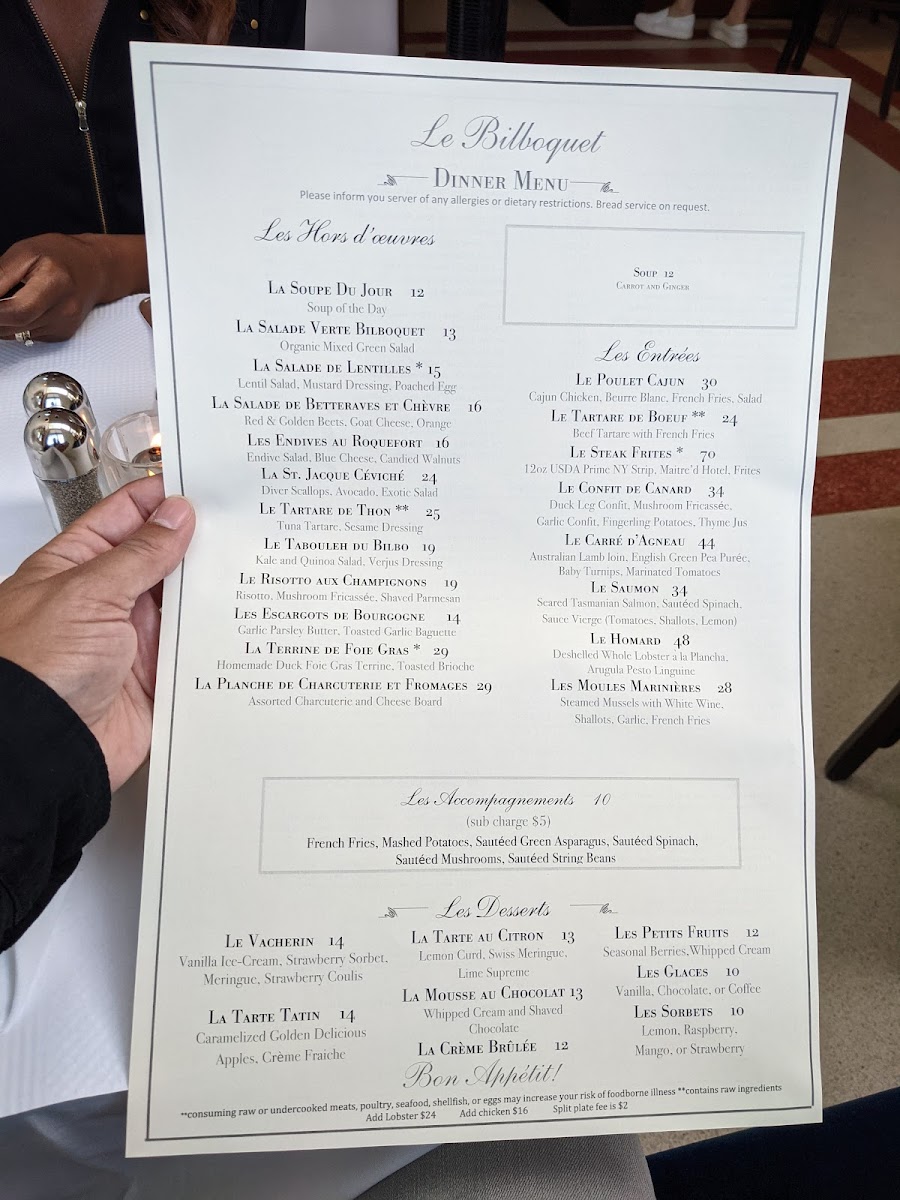 Le Bilboquet
Dinner Menu
Please inform you server of any allergies or dietary restrictions. Bread service on request.
Les Hors d'œuvres
La Soupe Du Jour 12
Soup of the Day
La Salade Verte Bilboquet 13
Organic Mixed Green Salad
La Salade de Lentilles * 15
Lentil Salad, Mustard Dressing, Poached Egg
La Salade de Betteraves et Chèvre 16
Red & Golden Beets, Goat Cheese, Orange
Les Endives au Roquefort 16
Endive Salad, Blue Cheese, Candied Walnuts
La St. Jacque Céviché 24
Diver Scallops, Avocado, Exotic Salad
Le Tartare de Thon ** 25
Tuna Tartare, Sesame Dressing
Le Tabouleh du Bilbo 19
Kale and Quinoa Salad, Verjus Dressing
Le Risotto aux Champignons 19
Risotto, Mushroom Fricassée, Shaved Parmesan
Les Escargots de Bourgogne 14
Garlic Parsley Butter, Toasted Garlic Baguette
La Terrine de Foie Gras * 29
Homemade Duck Foie Gras Terrine, Toasted Brioche
La Planche de Charcuterie et Fromages 29
Assorted Charcuterie and Cheese Board
Soup 12
Carrot and Ginger
Les Entrées
Le Poulet Cajun 30
Cajun Chicken, Beurre Blanc, French Fries, Salad
Le Tartare de Boeuf ** 24
Beef Tartare with French Fries
Le Steak Frites * 70
12oz USDA Prime NY Strip, Maitre'd Hotel, Frites
Le Confit de Canard 34
Duck Leg Confit, Mushroom Fricassée,
Garlic Confit, Fingerling Potatoes, Thyme Jus
Le Carré d'Agneau 44
Australian Lamb loin, English Green Pea Purée,
Baby Turnips, Marinated Tomatoes
Le Saumon 34
Seared Tasmanian Salmon, Sautéed Spinach,
Sauce Vierge (Tomatoes, Shallots, Lemon)
Le Homard 48
Deshelled Whole Lobster à la Plancha,
Arugula Pesto Linguine
Les Moules Marinières 28
Steamed Mussels with White Wine,
Shallots, Garlic, French Fries
Les Accompagnements 10
(sub charge $5)
French Fries, Mashed Potatoes, Sautéed Green Asparagus, Sautéed Spinach,
Sautéed Mushrooms, Sautéed String Beans
Les Desserts
Le Vacherin 14
Vanilla Ice-Cream, Strawberry Sorbet,
Meringue, Strawberry Coulis
La Tarte Tatin 14
Caramelized Golden Delicious
Apples, Crème Fraiche
La Tarte au Citron 13
Lemon Curd, Swiss Meringue,
Lime Supreme
La Mousse au Chocolat 13
Whipped Cream and Shaved
Chocolate
La Crème Brûlée 12
Les Petits Fruits 12
Seasonal Berries,Whipped Cream
Les Glaces 10
Vanilla, Chocolate, or Coffee
Les Sorbets 10
Lemon, Raspberry,
Mango, or Strawberry
Bon Appétit!
**consuming raw or undercooked meats, poultry, seafood, shellfish, or eggs may increase your risk of foodborne illness **contains raw ingredients
Add Lobster $24 Add chicken $16 Split plate fee is $2